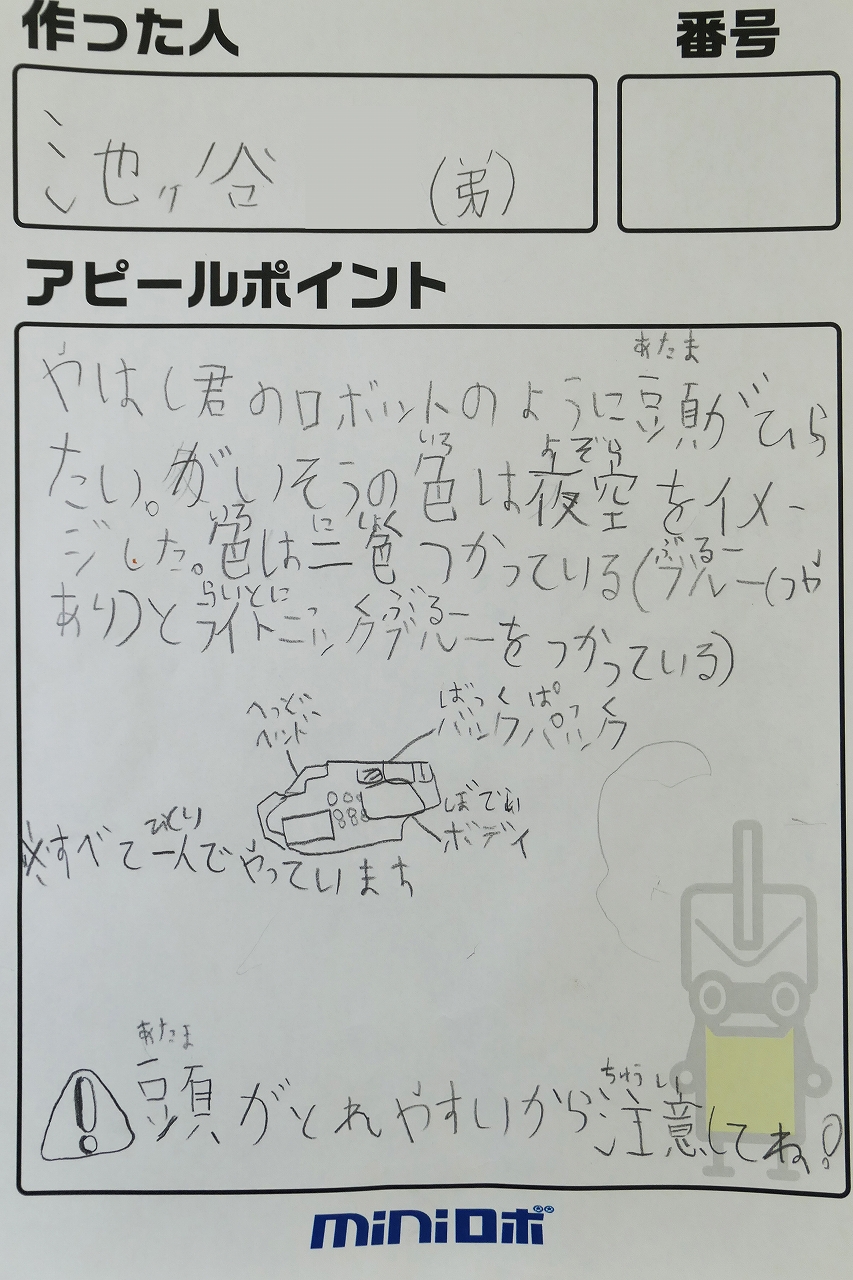 作った人
番号
池ヶ谷 (弟)
アピールポイント
あたま
やはし君のロボットのように頭がひら
いろ よぞら
たい。がいそうの色は夜空をイメー
いろ にしょく ぶるー
ジした。色は二色つかっている(ブルー(つや
らいとにっくぶるー
あり)とライトニックブルーをつかっている)
へっど ばっくぱっく
ヘッド バックパック
ぼでぃ
ボディ
ひとり
※すべて一人でやっています
あたま
ちゅうい
頭がとれやすいから注意してね!
miniロボ